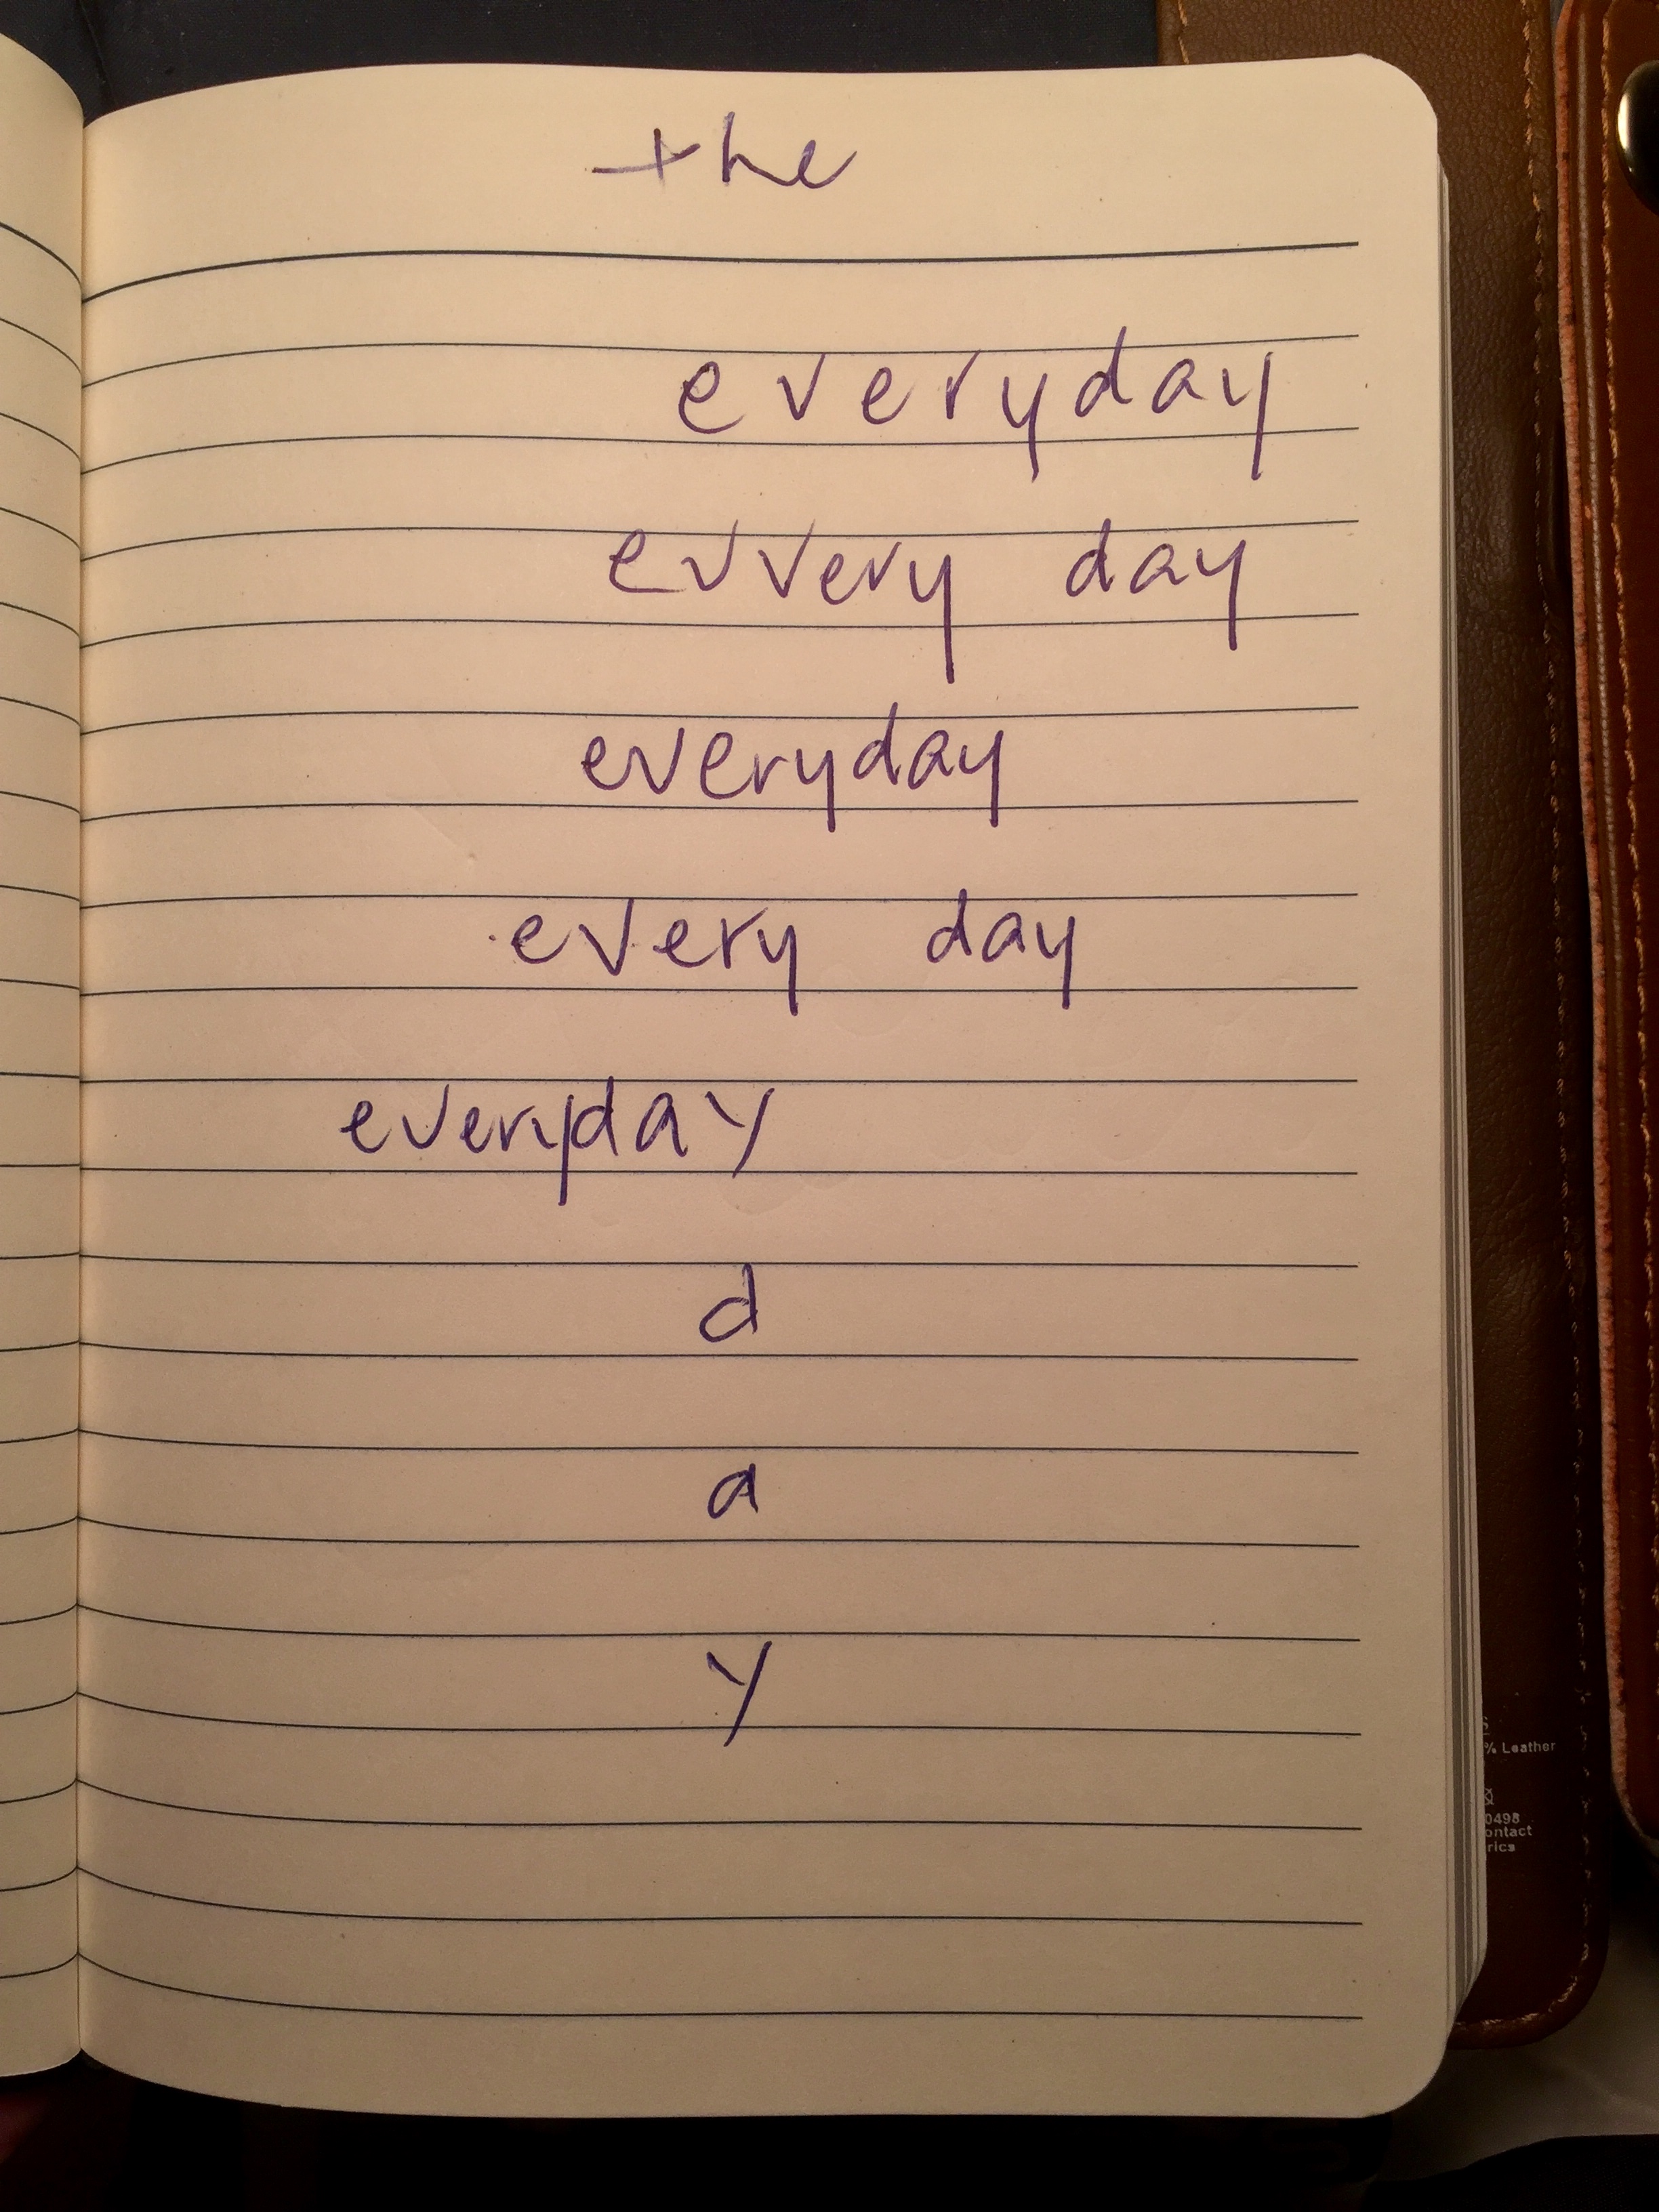 the
everyday
evvery day
everyday
every day
everyday
d
a
y
% Leather
0498
ontact
rics